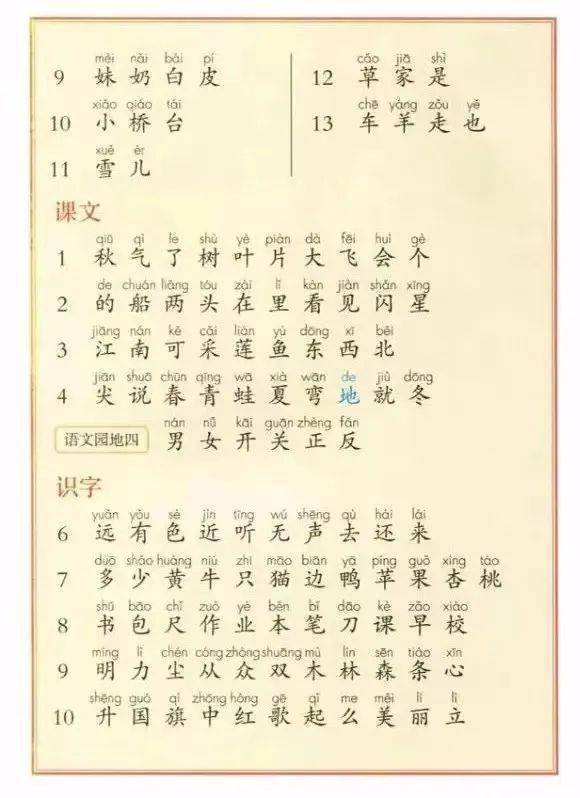 mèi nǎi bái pí
9 妹 奶 白 皮
xiǎo qiáo tái
10 小 桥 台
xuě ér
11 雪 儿
cǎo jiā shì
12 草 家 是
chē yáng zǒu yě
13 车 羊 走 也
课文
qiū qì le shù yè piàn dà fēi huì gè
1 秋 气 了 树 叶 片 大 飞 会 个
de chuán liǎng tóu zài lǐ kàn jiàn shǎn xīng
2 的 船 两 头 在 里 看 见 闪 星
jiāng nán kě cǎi lián yú dōng xī běi
3 江 南 可 采 莲 鱼 东 西 北
jiān shuō chūn qīng wā xià wān de jiù dōng
4 尖 说 春 青 蛙 夏 弯 地 就 冬
nán nǚ kāi guān zhèng fǎn
语文园地四 男 女 开 关 正 反
识字
yuǎn yǒu sè jìn tīng wú shēng qù hái lái
6 远 有 色 近 听 无 声 去 还 来
duō shǎo huáng niú zhī māo biān yā píng guǒ xìng táo
7 多 少 黄 牛 只 猫 边 鸭 苹 果 杏 桃
shū bāo chǐ zuò yè běn bǐ dāo kè zǎo xiào
8 书 包 尺 作 业 本 笔 刀 课 早 校
míng lì chén cóng zhòng shuāng mù lín sēn tiáo xīn
9 明 力 尘 从 众 双 木 林 森 条 心
shēng guó qí zhōng hóng gē qǐ me měi lì lì
10 升 国 旗 中 红 歌 起 么 美 丽 立